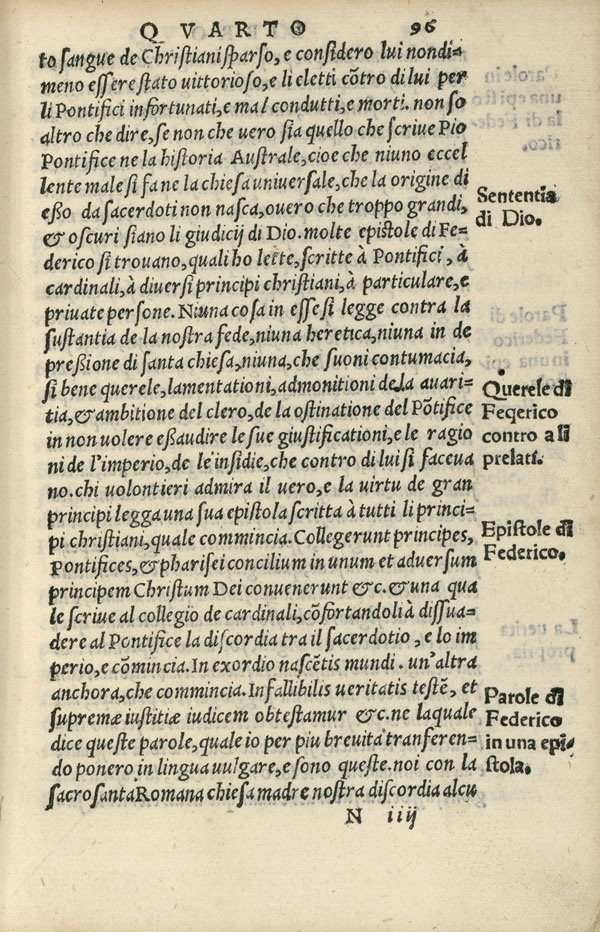 QVARTO 96
to sangue de Christiani sparso, e considero lui nondi-
meno essere stato vittorioso, e li eletti cõtro di lui per
li Pontifici infortunati, e mal condutti, e morti. non so
altro che dire, se non che vero sia quello che scriue Pio
Pontifice ne la historia Australe, cioe che niuno eccel
lente male si fa ne la chiesa vniuersale, che la origine di
esso da sacerdoti non nasca, ouero che troppo grandi,
& oscuri siano li giudicij di Dio. molte epistole di Fe-
derico si trouano, quali ho lette, scritte à Pontifici, à
cardinali, à diuersi principi christiani, à particulare, e
priuate persone. Niuna cosa in esse si legge contra la
sustantia de la nostra fede, niuna heretica, niuna in de
pressione di santa chiesa, niuna, che suoni contumacia,
si bene querele, lamentationi, admonitioni de la auari-
tia, & ambitione del clero, de la ostinatione del Põtifice
in non volere essaudire le sue giustificationi, e le ragio
ni de l'imperio, de le insidie, che contro di lui si faceua
no. chi volontieri admira il vero, e la virtu de gran
principi legga una sua epistola scritta à tutti li princi-
pi christiani, quale commincia. Collegerunt principes,
Pontifices, & pharisei concilium in unum et aduersum
principem Christum Dei conuenerunt &c. & una qua
le scriue al collegio de cardinali, cõfortandoli à dissua-
dere al Pontifice la discordia tra il sacerdotio, e lo im
perio, e cõmincia. In exordio nascẽtis mundi. un'altra
anchora, che commincia. Infallibilis veritatis testẽ, et
supremæ iustitiæ iudicem obtestamur &c. ne laquale
dice queste parole, quale io per piu breuita tranferen-
do ponero in lingua uulgare, e sono queste. noi con la
sacrosanta Romana chiesa madre nostra discordia alcu
N iiij
Sententia
di Dio.
Querele di
Feqerico
contro a li
prelati.
Epistole di
Federico.
Parole di
Federico
in una epi-
stola.